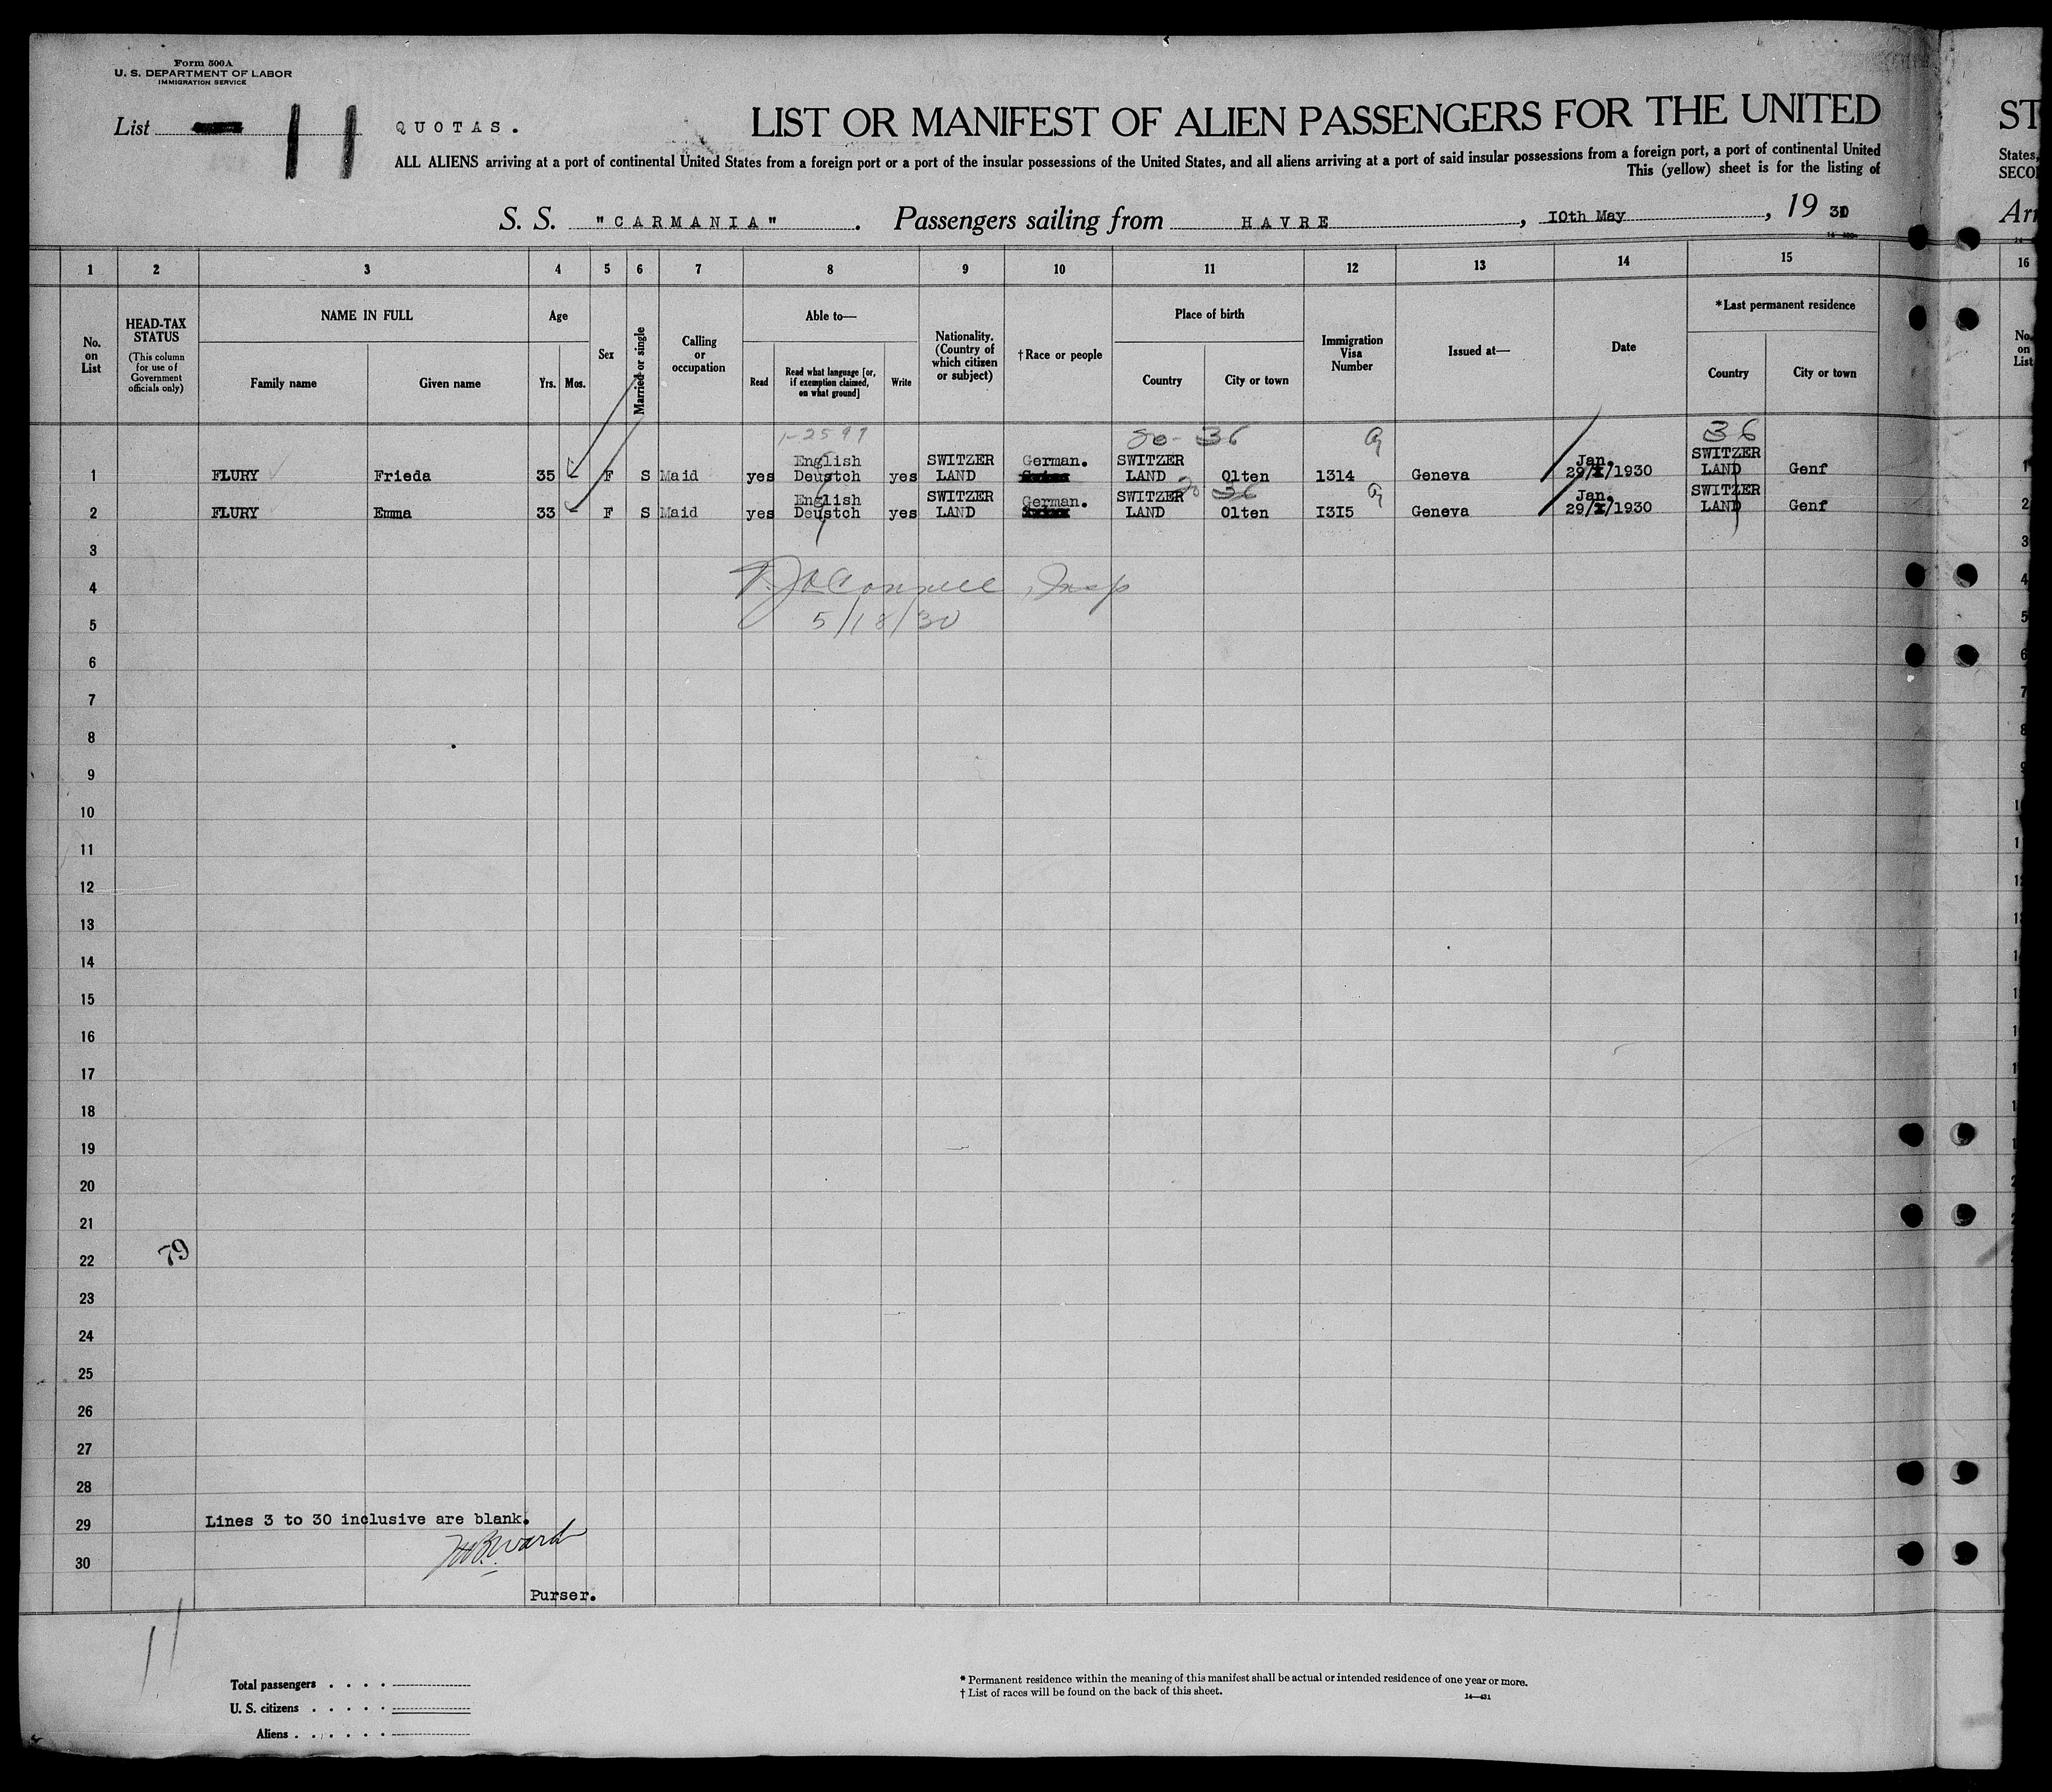 Form 500A
U. S. DEPARTMENT OF LABOR
IMMIGRATION SERVICE
List 11 QUOTAS.
LIST OR MANIFEST OF ALIEN PASSENGERS FOR THE UNITED
ALL ALIENS arriving at a port of continental United States from a foreign port or a port of the insular possessions of the United States, and all aliens arriving at a port of said insular possessions from a foreign port, a port of continental United
This (yellow) sheet is for the listing of
S. S. "CARMANIA". Passengers sailing from HAVRE, 10th May, 19 30
ST
States,
SECO
Arr
1 2 3 4 5 6 7 8 9 10 11 12 13 14 15 16
No. on List
HEAD-TAX STATUS (This column for use of Government officials only)
NAME IN FULL
Family name Given name
Age
Yrs. Mos.
Sex
Married or single
Calling or occupation
Able to—
Read
Read what language [or, if exemption claimed, on what ground]
Write
Nationality. (Country of which citizen or subject)
†Race or people
Place of birth
Country City or town
Immigration Visa Number
Issued at—
Date
*Last permanent residence
Country City or town
No. on List
1-2597 36 36
English SWITZER German. SWITZER Jan. SWITZER
1 FLURY Frieda 35 F S Maid yes Deustch yes LAND LAND Olten 1314 Geneva 29/I/1930 LAND Genf 1
English SWITZER German. SWITZER 36 Jan. SWITZER
2 FLURY Emma 33 - F S Maid yes Deustch yes LAND LAND Olten I3I5 Geneva 29/I/1930 LAND Genf 2
3
4 Insp
5 5/18/30
6
7
8
9
10
11
12
13
14
15
16
17
18
19
20
21
22 79
23
24
25
26
27
28
29 Lines 3 to 30 inclusive are blank.
30
Purser.
11
Total passengers . . . .
U. S. citizens . . . . .
Aliens . . . . . .
* Permanent residence within the meaning of this manifest shall be actual or intended residence of one year or more.
† List of races will be found on the back of this sheet.
14—431